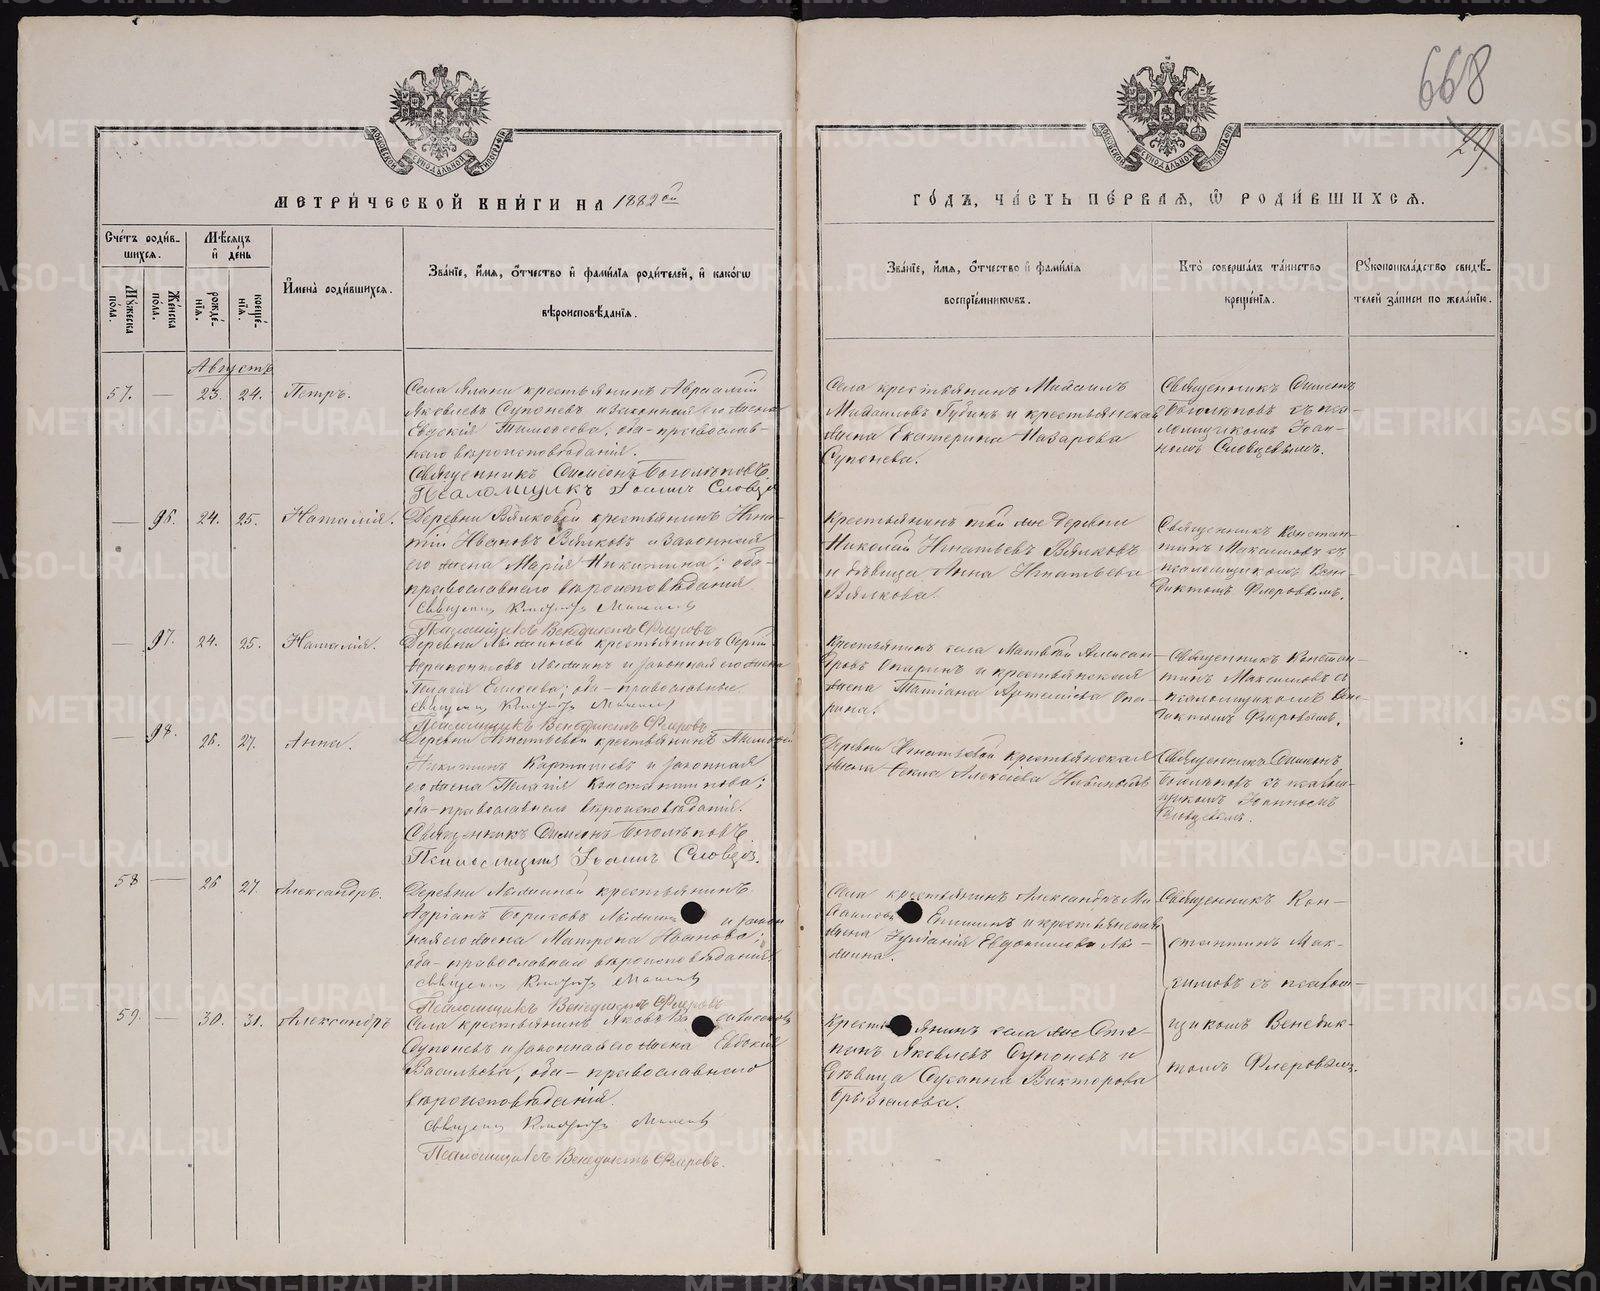 668
29
МЕТРИ́ЧЕСКОЙ КНИ́ГИ НА 1882ой
ГО́ДЪ, ЧА́СТЬ ПЕ́РВАЯ, Ѡ РОДИ́ВШИХСЯ.
Сче́тъ роди́в-
шихся.
Мꙋ́жеска по́ла.
Же́нска по́ла.
Мѣ́сяцъ и҆ де́нь
рожде́-нїя.
креще́-нїя.
И҆мена̀ роди́вшихся.
Зва́нїе, и҆́мя, ѻ҆́тчество и҆ фами́лїя роди́телей, и҆ како́гѡ
вѣроисповѣ́данїя.
Зва́нїе, и҆́мя, ѻ҆́тчество и҆ фами́лїя
воспрїе́мникѡвъ.
Кто̀ соверша́лъ та́инство
креще́нїя.
Рꙋкоприкла́дство свидѣ́-
телей за́писи по жела́нїю.
Августъ
57. — 23. 24. Петръ.
Села Яланн крестьянинъ Авраамій
Яковлевъ Супоневъ и законная его жена
Евдокія Тимоѳеева, оба-православ-
наго вѣроисповѣданія.
Священникъ Симеонъ Боголѣповъ
Псаломщикъ Іоаннъ Словцовъ
Села крестьянинъ Михаилъ
Михайловъ Губинъ и крестьянская
жена Екатерина Назарова
Супонева.
Священникъ Симеонъ
Боголѣповъ съ пса-
ломщикомъ Іоан-
номъ Словцовымъ.
— 96. 24. 25. Наталія.
Деревни Вялковой крестьянинъ Игна-
тій Ивановъ Вялковъ и законная
его жена Марія Никитина; оба-
православнаго вѣроисповѣданія
Священникъ Константинъ Максимовъ
Псаломщикъ Венедиктъ Флеровъ
Крестьянинъ той же деревни
Николай Игнатьевъ Вялковъ
и дѣвица Анна Игнатьева
Вялкова.
Священникъ Констан-
тинъ Максимовъ съ
псаломщикомъ Вене-
диктомъ Флеровымъ.
— 97. 24. 25. Наталія.
крестьянинъ Сергій
и законная его жена
Пелагія Елисеева; оба-православные
Священникъ Константинъ Максимовъ
Псаломщикъ Венедиктъ Флеровъ
Крестьянинъ села Матвѣй Алексан-
дровъ Опаринъ и крестьянская
жена Татіана Артеміева Опа-
рина.
Священникъ Констан-
тинъ Максимовъ съ
псаломщикомъ Вене-
диктомъ Флеровымъ.
— 98. 26. 27. Анна.
Деревни Игнатьевой крестьянинъ
Никитинъ Карташевъ и законная
его жена Пелагія Константинова;
оба-православнаго вѣроисповѣданія.
Священникъ Симеонъ Боголѣповъ
Псаломщикъ Іоаннъ Словцовъ.
Деревни Игнатьевой крестьянская
жена Алексѣева
Священникъ Симеонъ
Боголѣповъ съ псалом-
щикомъ Іоанномъ
Словцовымъ.
58 — 26 27. Александръ.
крестьянинъ
Адріанъ Борисовъ и закон
ная его жена Матрона Иванова;
оба-православнаго вѣроисповѣданія
Священникъ Константинъ Максимовъ
Псаломщикъ Венедиктъ Флеровъ
Села крестьянинъ Александръ Ми-
хайловъ и крестьянская
жена Евдокимова
Священникъ Кон-
стантинъ Мак-
симовъ съ псалом-
щикомъ Венедик-
томъ Флеровымъ.
59. — 30. 31. Александръ
Села крестьянинъ Яковъ
Супоневъ и законная его жена Евдокія
Васильева, оба-православнаго
вѣроисповѣданія.
Священникъ Константинъ Максимовъ
Псаломщикъ Венедиктъ Флеровъ.
Крестьянинъ села же Сте-
панъ Яковлевъ Супоневъ и
дѣвица Сусанна Викторова
METRIKI.GASO-URAL.RU